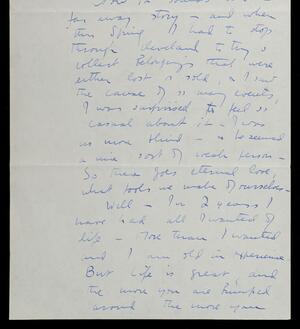 far away story - and when
this Spring I had to stop
through Cleveland to try &
collect belongings that were
either lost or sold, & I saw
the cause of so many events,
I was surprised to feel so
casual about it - I was
no more blind - & he seemed
a nice sort of weak person -
So there goes eternal love,
what fools we make of ourselves -
Well - In 2 years I
have had all I wanted of
life - More than I wanted
and I am old in experience
But life is great, and
the more you are bumped
around the more you